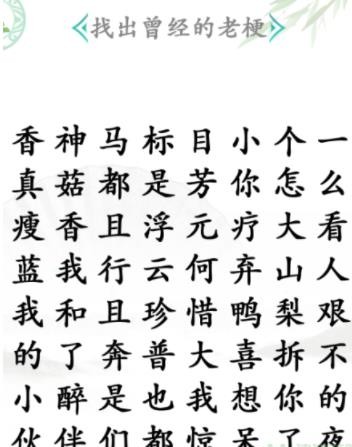 找出曾经的老梗
香神马标目小个一
真菇都是芳你怎么
瘦香且浮元疗大看
蓝我行云何弃山人
我和且珍惜鸭梨艰
的了奔普大喜拆不
小醉是也我想你的
伙伴们都惊呆了夜